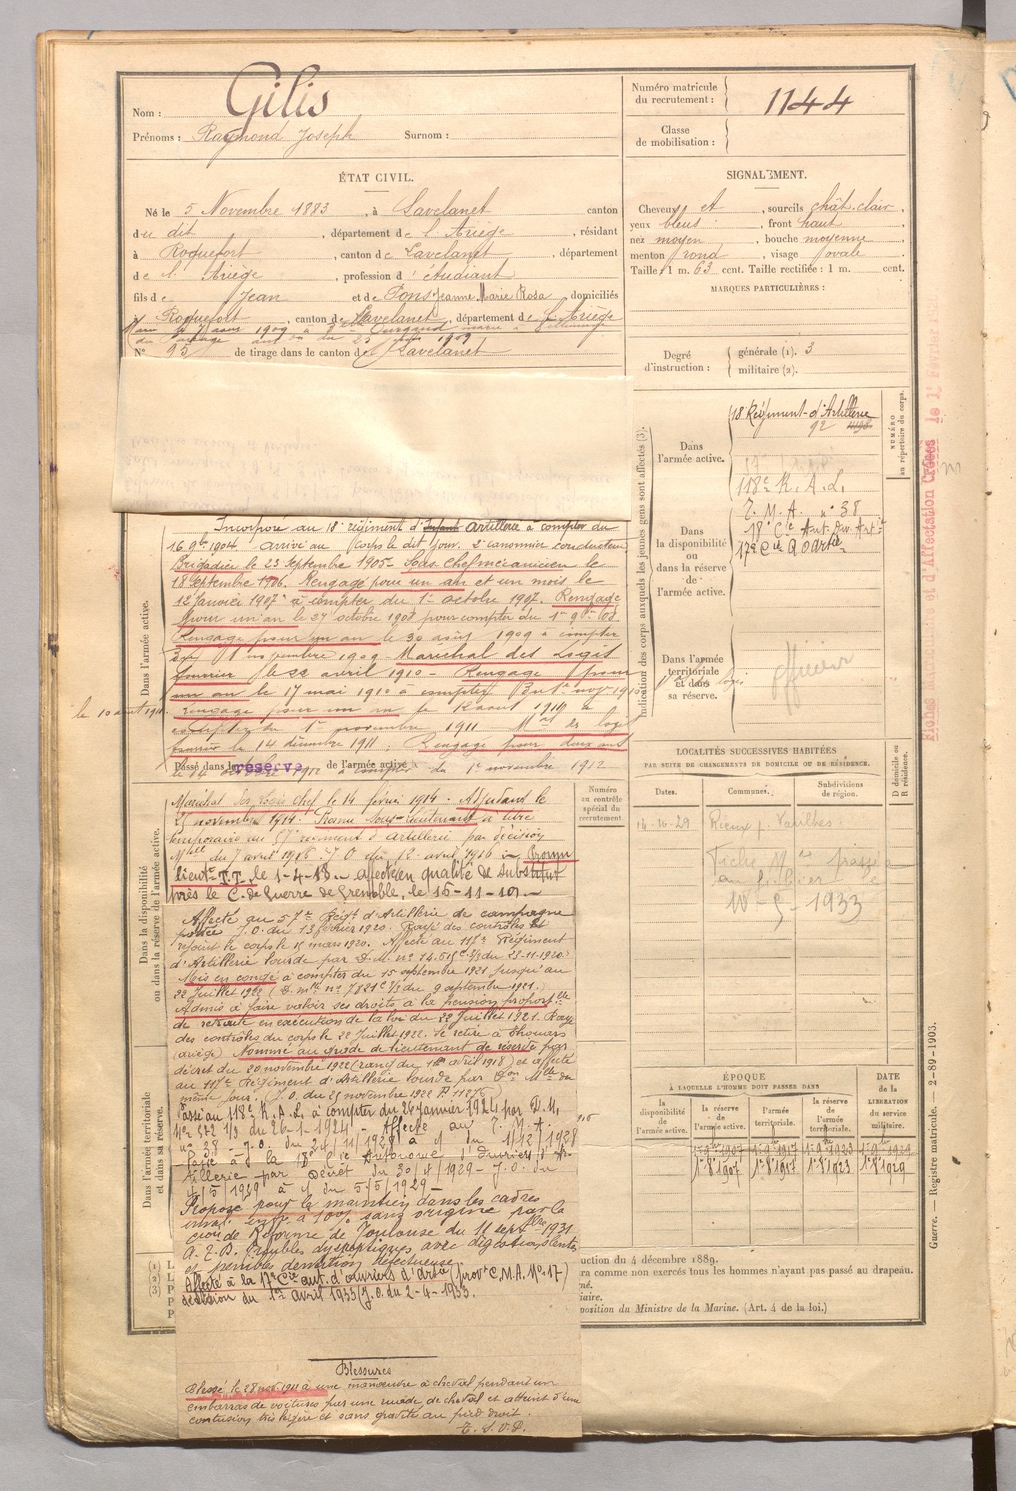 Nom : Gilis
Prénoms : Raymond Joseph Surnom :
Numéro matricule du recrutement : 1144
Classe de mobilisation :
ÉTAT CIVIL.
Né le 5 Novembre 1883, à Lavelanet canton
du dit, département de l'Ariège, résidant
à Roquefort, canton de Lavelanet, département
de l'Ariège, profession d'étudiant
fils de Jean et de Pons Jeanne Marie Rosa, domiciliés
à Roquefort, canton de Lavelanet, département de l'Ariège
N° 95 de tirage dans le canton de Lavelanet
SIGNALEMENT.
Cheveux et, sourcils chât. clair,
yeux bleus, front haut
nez moyen, bouche moyenne
menton rond, visage ovale
Taille : 1 m. 63 cent. Taille rectifiée : 1 m. cent.
MARQUES PARTICULIÈRES :
Degré d'instruction : générale (1). 3
militaire (2).
Indication des corps auxquels les jeunes gens sont affectés (3).
NUMÉRO au répertoire du corps.
Dans l'armée active.
18 Régiment d'Artillerie
92
Dans la disponibilité ou dans la réserve de l'armée active.
118e R. A. L.
T. M. A. n° 38
18e Cie Aut. Ouv. Art
17e Cie
Dans l'armée territoriale et dans sa réserve.
officier
Dans l'armée active.
Incorporé au 18e régiment d'Artillerie à compter du
16 9bre 1904 arrivé au Corps le dit jour. 2e canonnier conducteur
Brigadier le 23 Septembre 1905. Sous chef mécanicien le
18 Septembre 1906. Rengagé pour un an et un mois le
12 Janvier 1907 à compter du 1er octobre 1907. Rengagé
pour un an le 27 octobre 1908 pour compter du 1er 9bre 1908
Rengagé pour un an le 30 août 1909 à compter
du 1er novembre 1909. Maréchal des Logis
fourrier le 22 avril 1910. Rengagé pour
un an le 17 mai 1910 à compter
le 10 août 1911.
rengagé pour un an
compter du 1er novembre 1911 Mal des logis
fourrier le 14 décembre 1911. Rengagé pour deux ans
Passé dans la réserve de l'armée active
à compter du 1er novembre 1912
Dans la disponibilité ou dans la réserve de l'armée active.
Maréchal des Logis Chef le 14 février 1914. Adjudant le
novembre 1914. Promu Sous-lieutenant à titre
temporaire au régiment d'Artillerie par décision
Mlle du 7 avril 1916. J.O du 12 avril 1916. Promu
lieutt T.T. le 1-4-18. affecté en qualité de substitut
près le C. de Guerre de Grenoble, le 16-11-
Affecté au 57e Régt d'Artillerie de campagne
portée J.O. du 13 février 1920. Rayé des contrôles et
rejoint le corps le 15 mars 1920. Affecté au 115e Régiment
d'Artillerie lourde par D.M. n°
Mis en congé à compter du 15 septembre 1921 jusqu'au
22 Juillet 1922 (D. mlle n° 7821 du 9 septembre 1921.)
Admis à faire valoir ses droits à la pension proport lle
de retraite en exécution de la loi du 22 Juillet 1921. Rayé
des contrôles du corps le 22 Juillet 1922. Se retire à
(ariège) Nommé au grade de lieutenant de réserve par
décret du 20 novembre 1922 (rang du 1er avril 1918) et affecté
au 117e Régiment d'Artillerie lourde par Don Mlle du
même jour. J.O. du 25 novembre 1922
Passé au 118e R.A.L. à compter du 26 janvier 1924 par D.M.
n° 572 1/3 du 26-1-1924 - Affecté au T. M. A.
n° 38 - J.O. du 24/11/1928 à du 1/12/1928
Passé à la 18e Cie Autonome d'Ouvriers d'Ar-
tillerie par Décret du 30/4/1929 - J.O. du
4/5/1929 à du 5/5/1929
Dans l'armée territoriale et dans sa réserve.
Proposé pour le maintien dans les cadres
inval. inf. à 10% sans origine par la
cion de Réforme de Toulouse du 11 septbre 1931
A.E.D. Troubles dyspeptiques avec digestions lentes
et pénibles dentition défectueuse
Affecté à la 17e Cie aut. d'ouvriers d'artie (provt C.M.A. N° 17)
décision du 1er avril 1933 (J.O. du 2-4-1933.
Blessures
Blessé le 28 nov. 1911 à une manœuvre à cheval pendant un
embarras de voitures par une ruade de cheval et atteint d'une
contusion très légère et sans gravité au pied droit.
T. S. V. P.
Numéro au contrôle spécial du recrutement.
LOCALITÉS SUCCESSIVES HABITÉES
PAR SUITE DE CHANGEMENTS DE DOMICILE OU DE RÉSIDENCE.
Dates. Communes. Subdivisions de région. D domicile ou R résidence.
16-10-29 Rieux p. Varilhes
Fiche Mle passée
au fichier le
10-5-1933
ÉPOQUE
À LAQUELLE L'HOMME DOIT PASSER DANS
DATE de la LIBÉRATION du service militaire.
la disponibilité de l'armée active. la réserve de l'armée active. l'armée territoriale. la réserve de l'armée territoriale.
1er 8bre 1907 1er 8bre 1917 1er 8bre 1923 1er 8bre 1929
(1)
(2)
(3)
ruction du 4 décembre 1889.
ra comme non exercés tous les hommes n'ayant pas passé au drapeau.
position du Ministre de la Marine. (Art. 4 de la loi.)
Guerre. — Registre matricule. — 2-89-1903.
Fiches Matriculaire et d'Affectation Créées le 1er Février